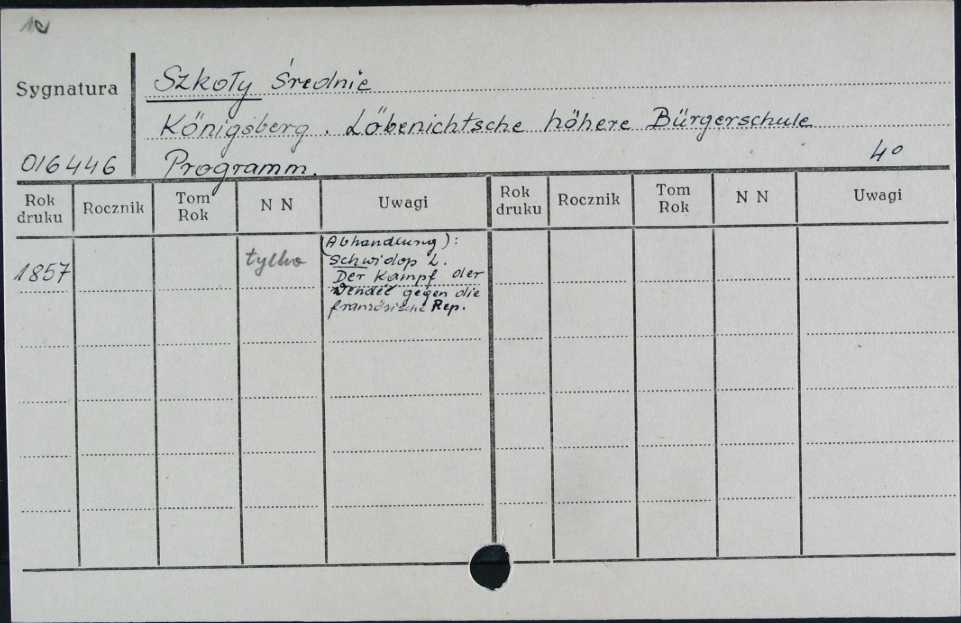 Sygnatura
Szkoły Średnie
Königsberg. Löbenichtsche höhere Bürgerschule
016446
Programm.
4°
Rok druku
Rocznik
Tom Rok
N N
Uwagi
Rok druku
Rocznik
Tom Rok
N N
Uwagi
1857
tylko
(Abhandlung):
Schwidop L.
Der Kampf der
Vendée gegen die
französische Rep.